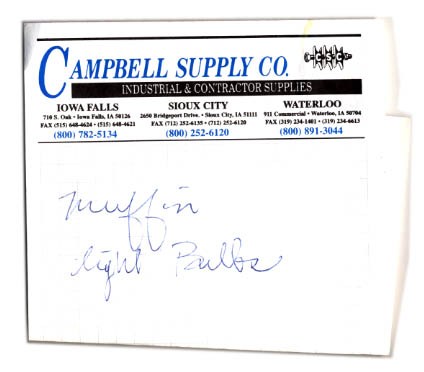 CAMPBELL SUPPLY CO.
C S C
INDUSTRIAL & CONTRACTOR SUPPLIES
IOWA FALLS
710 S. Oak • Iowa Falls, IA 50126
FAX (515) 648-4624 • (515) 648-4621
(800) 782-5134
SIOUX CITY
2650 Bridgeport Drive. • Sioux City, IA 51111
FAX (712) 252-6135 • (712) 252-6120
(800) 252-6120
WATERLOO
911 Commercial • Waterloo, IA 50704
FAX (319) 234-1401 • (319) 234-6613
(800) 891-3044
Muffin
light Bulbs